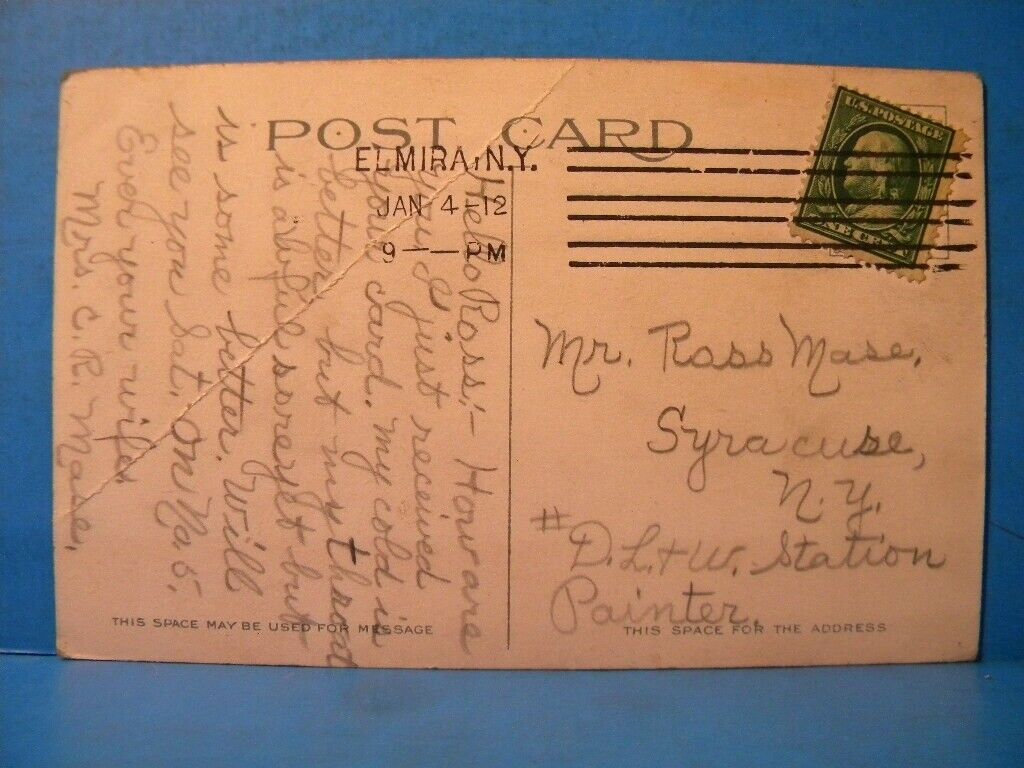 POST CARD
ELMIRA, N.Y.
JAN 4 -12
9 — PM
U.S. POSTAGE
ONE CENT
Hello Ross:- How are
you I just received
your card. My cold is
better but my throat
is abful sore yet but
is some better. Will
see you Sat. on No. 5.
Ever your wife
Mrs. C. R. Mase.
Mr. Ross Mase,
Syracuse,
N.Y.
# D. L. + W. Station
Painter.
THIS SPACE MAY BE USED FOR MESSAGE
THIS SPACE FOR THE ADDRESS